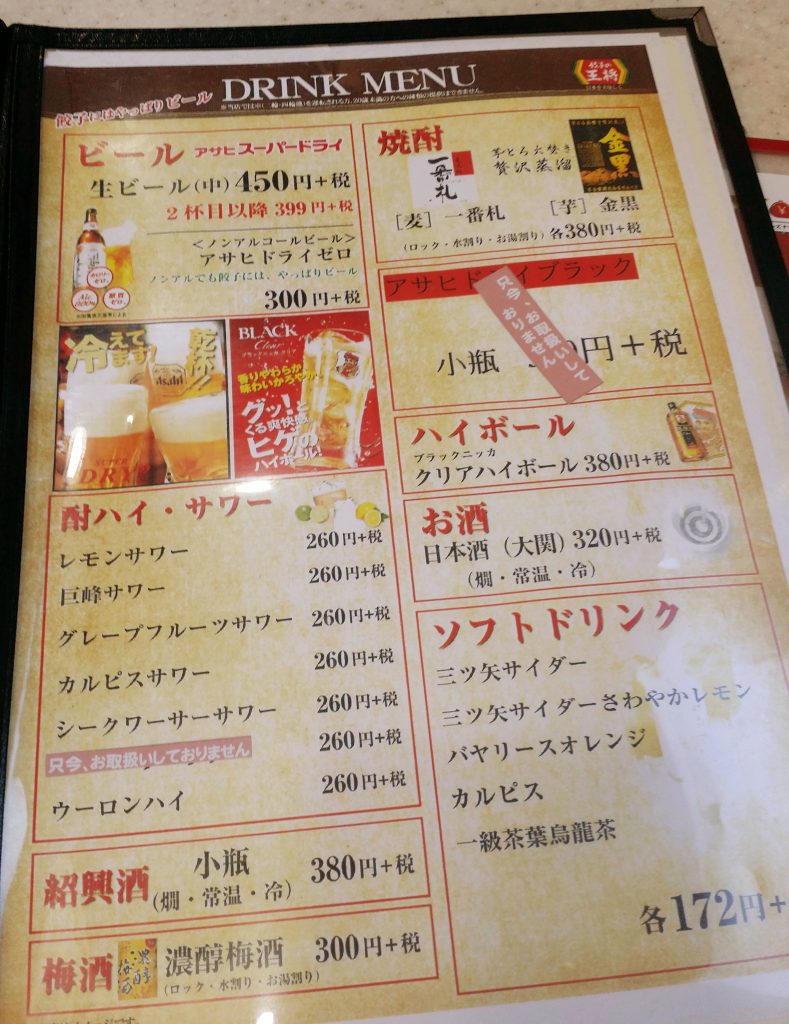 餃子にはやっぱりビール
DRINK MENU
餃子の
王将
ビール アサヒスーパードライ
生ビール(中) 450円+税
2杯目以降 399円+税
<ノンアルコールビール>
アサヒドライゼロ
ノンアルでも餃子には、やっぱりビール
300円+税
カロリーゼロ。
糖質ゼロ。
冷えて
ます!
乾杯!!
Asahi
SUPER
DRY
BLACK
Clear
香りやわらか
味わいかろやか
グッ!と
くる爽快感
ヒゲの
ハイボール!
酎ハイ・サワー
レモンサワー 260円+税
巨峰サワー 260円+税
グレープフルーツサワー 260円+税
カルピスサワー 260円+税
シークワーサーサワー 260円+税
只今、お取扱いしておりません 260円+税
ウーロンハイ 260円+税
紹興酒 小瓶 380円+税
(燗・常温・冷)
梅酒 濃醇梅酒 300円+税
(ロック・水割り・お湯割り)
焼酎
一番札
芋とろ火焚き
贅沢蒸溜
金黒
[麦] 一番札 [芋] 金黒
(ロック・水割り・お湯割り) 各380円+税
アサヒドライブラック
只今、お取扱いして
おりません
小瓶 円+税
ハイボール
ブラックニッカ
クリアハイボール 380円+税
お酒
日本酒 (大関) 320円+税
(燗・常温・冷)
ソフトドリンク
三ツ矢サイダー
三ツ矢サイダーさわやかレモン
バヤリースオレンジ
カルピス
一級茶葉烏龍茶
各172円+